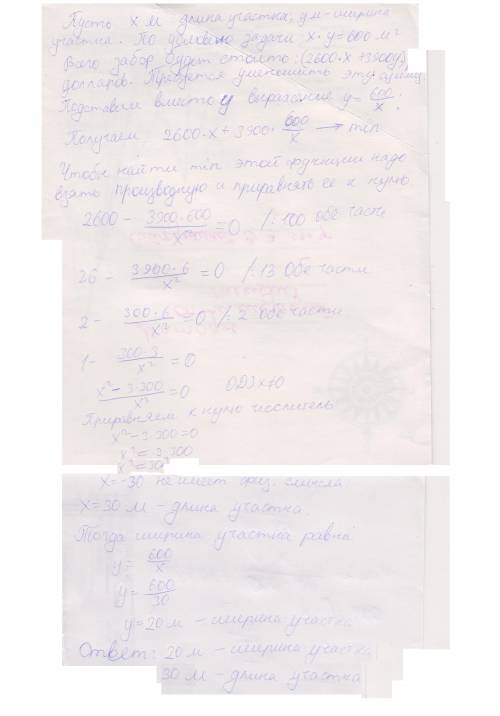 Пусть x м длина участка, y м - ширина
участка. По условию задачи x · y = 600 м²
Всего забор будет стоить: (2600 · x + 3900y)
долларов. Требуется уменьшить эту сумму
Подставим вместо y выражение y = 600/x;
Получаем 2600 · x + 3900 · 600/x → min
Чтобы найти min этой функции надо
взять производную и приравнять её к нулю
2600 - 3900·600/x² = 0 /: 100 обе части
26 - 3900·6/x² = 0 /: 13 Обе части
2 - 300·6/x² = 0 /: 2 обе части
1 - 300·3/x² = 0
x² - 3·300/x² = 0 ОДЗ x≠0
Приравняем к нулю числитель
x² - 3·300 = 0
x² = 3·300
x² = 30²
x = -30 не имеет физ. смысла
x = 30 м - длина участка.
Тогда ширина участка равна
y = 600/x
y = 600/30
y = 20 м - ширина участка
Ответ: 20 м - ширина участка
30 м - длина участка